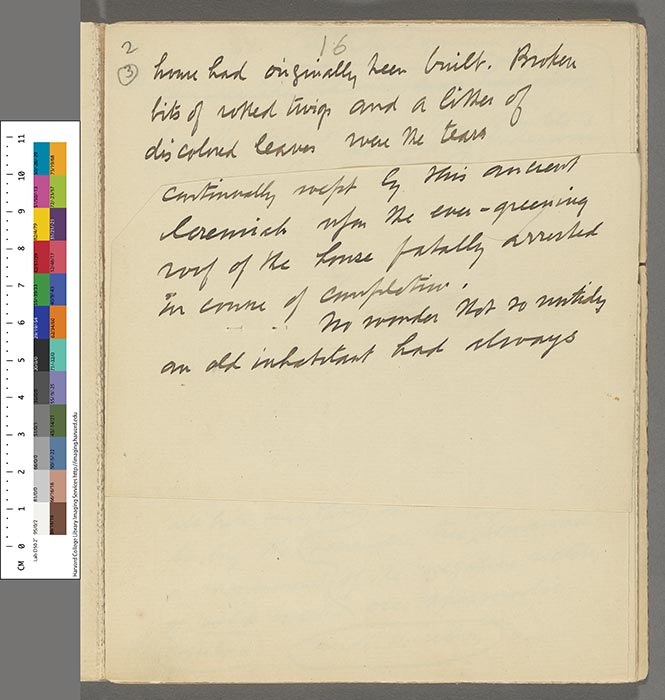 2
16
3
house had originally been built. Broken
bits of rotted twigs and a litter of
discolored leaves were the tears
continually wept by this ancient
Jeremiah upon the ever-greening
roof of the house fatally arrested
in course of completion.
No wonder that so untidy
an old inhabitant had always
11
10
9
8
7
6
5
4
3
2
1
CM 0
Harvard College Library Imaging Services http://imaging.harvard.edu